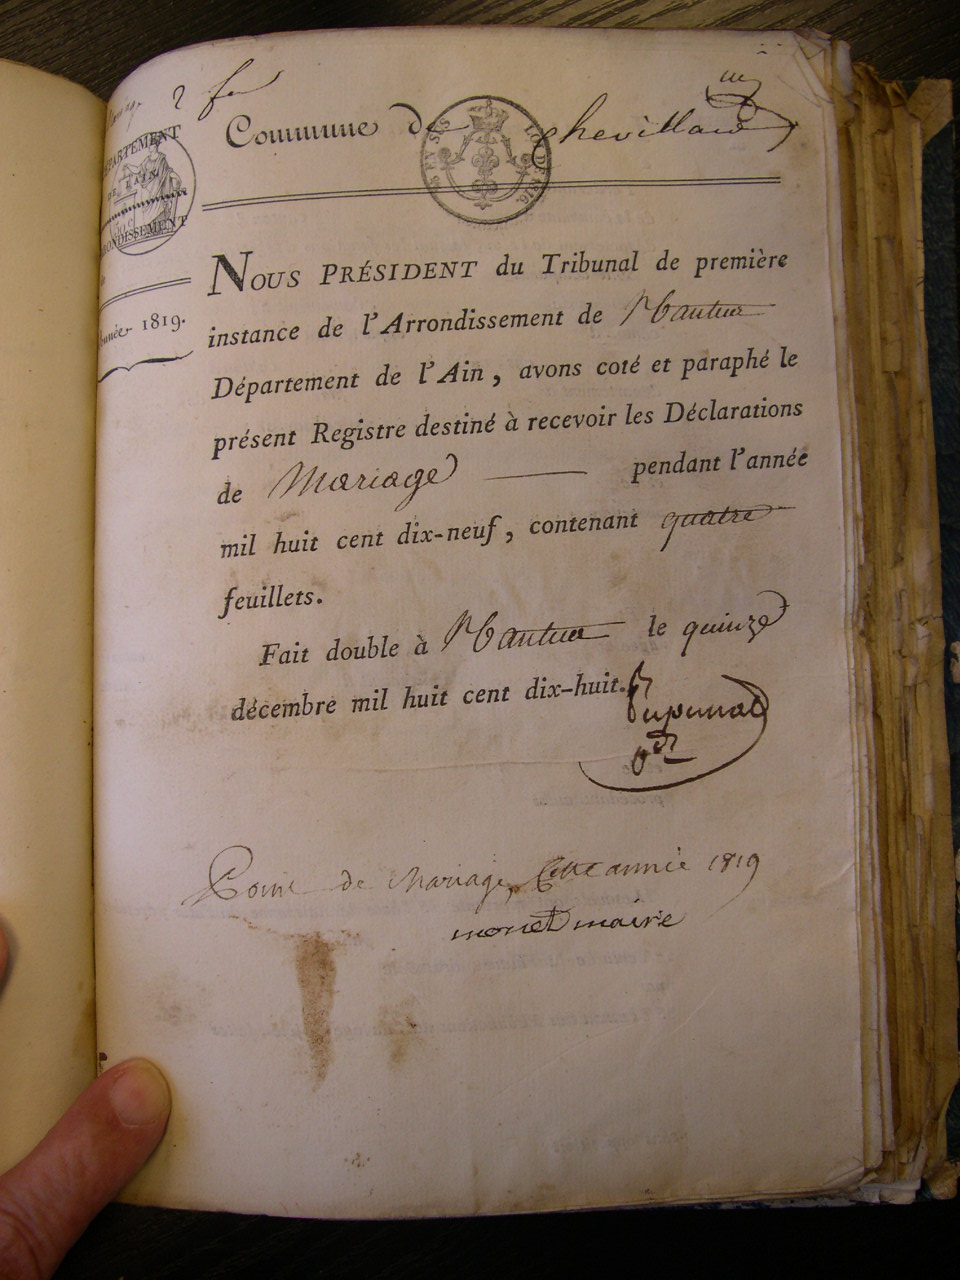 2 f
Commune de chevillard
DÉPARTEMENT
DE L'AIN.
ARRONDISSEMENT
EN SUS
LOI DE 1816.
Année 1819.
NOUS PRÉSIDENT du Tribunal de première
instance de l'Arrondissement de Nantua
Département de l'Ain, avons coté et paraphé le
présent Registre destiné à recevoir les Déclarations
de Mariage pendant l'année
mil huit cent dix-neuf, contenant quatre
feuillets.
Fait double à Nantua le quinze
décembre mil huit cent dix-huit.
Point de Mariage, Cette année 1819
monet maire